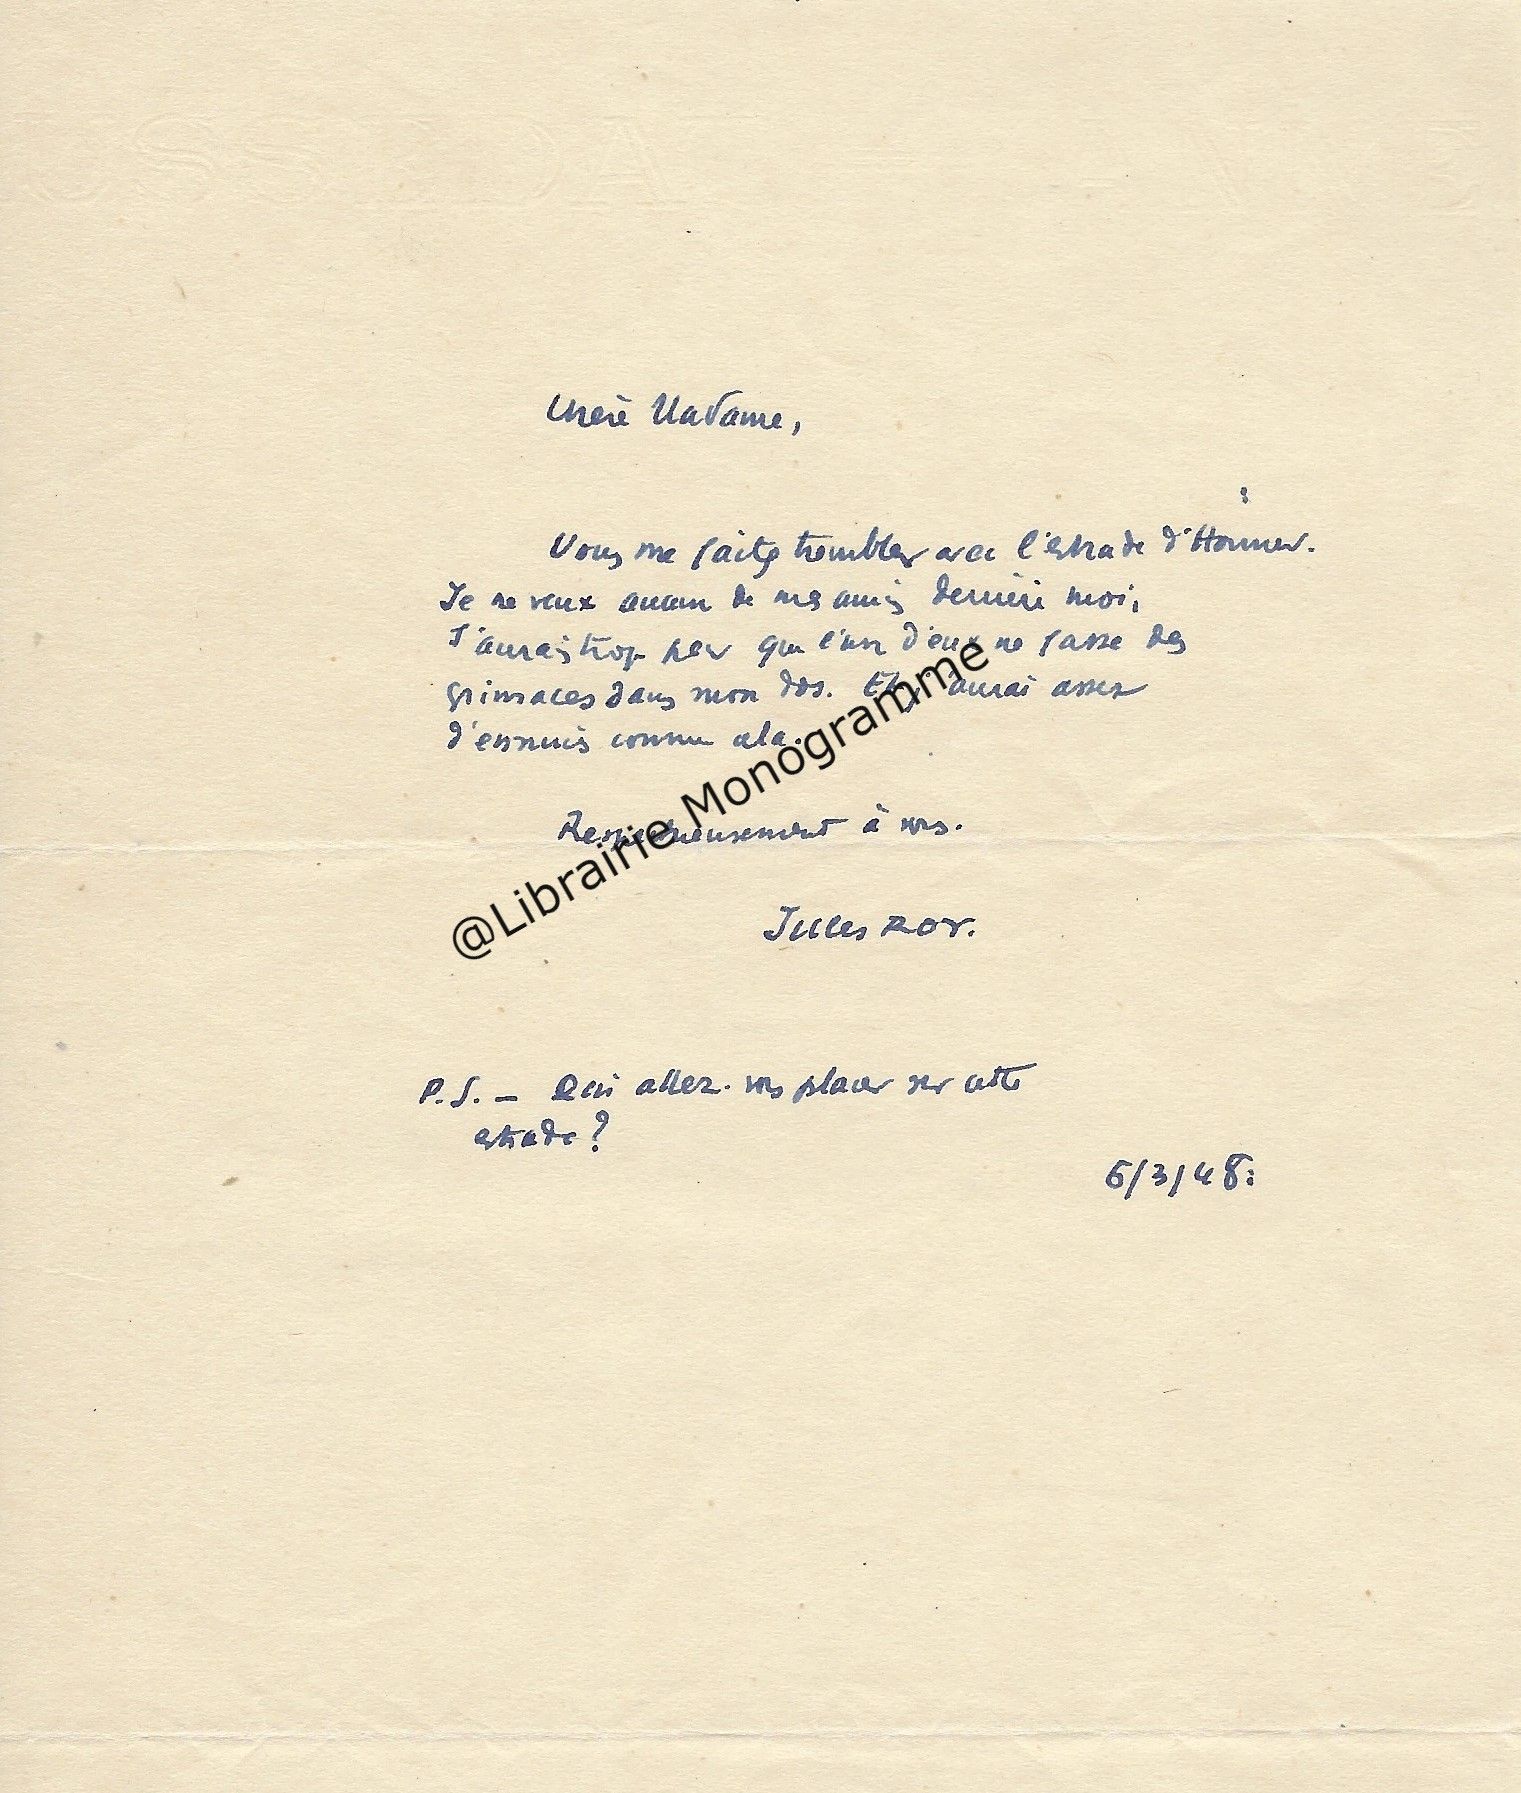 Chère Madame,
Vous me faites trembler avec l'estrade d'Honneur.
Je ne veux aucun de mes amis derrière moi,
J'aurais trop peur que l'un d'eux ne fasse des
grimaces dans mon dos. Et j'aurai assez
d'ennuis comme cela.
Respectueusement à vous.
Jules Roy.
@Librairie Monogramme
P.S. — Qui allez-vous placer sur cette
estrade ?
6/3/48.